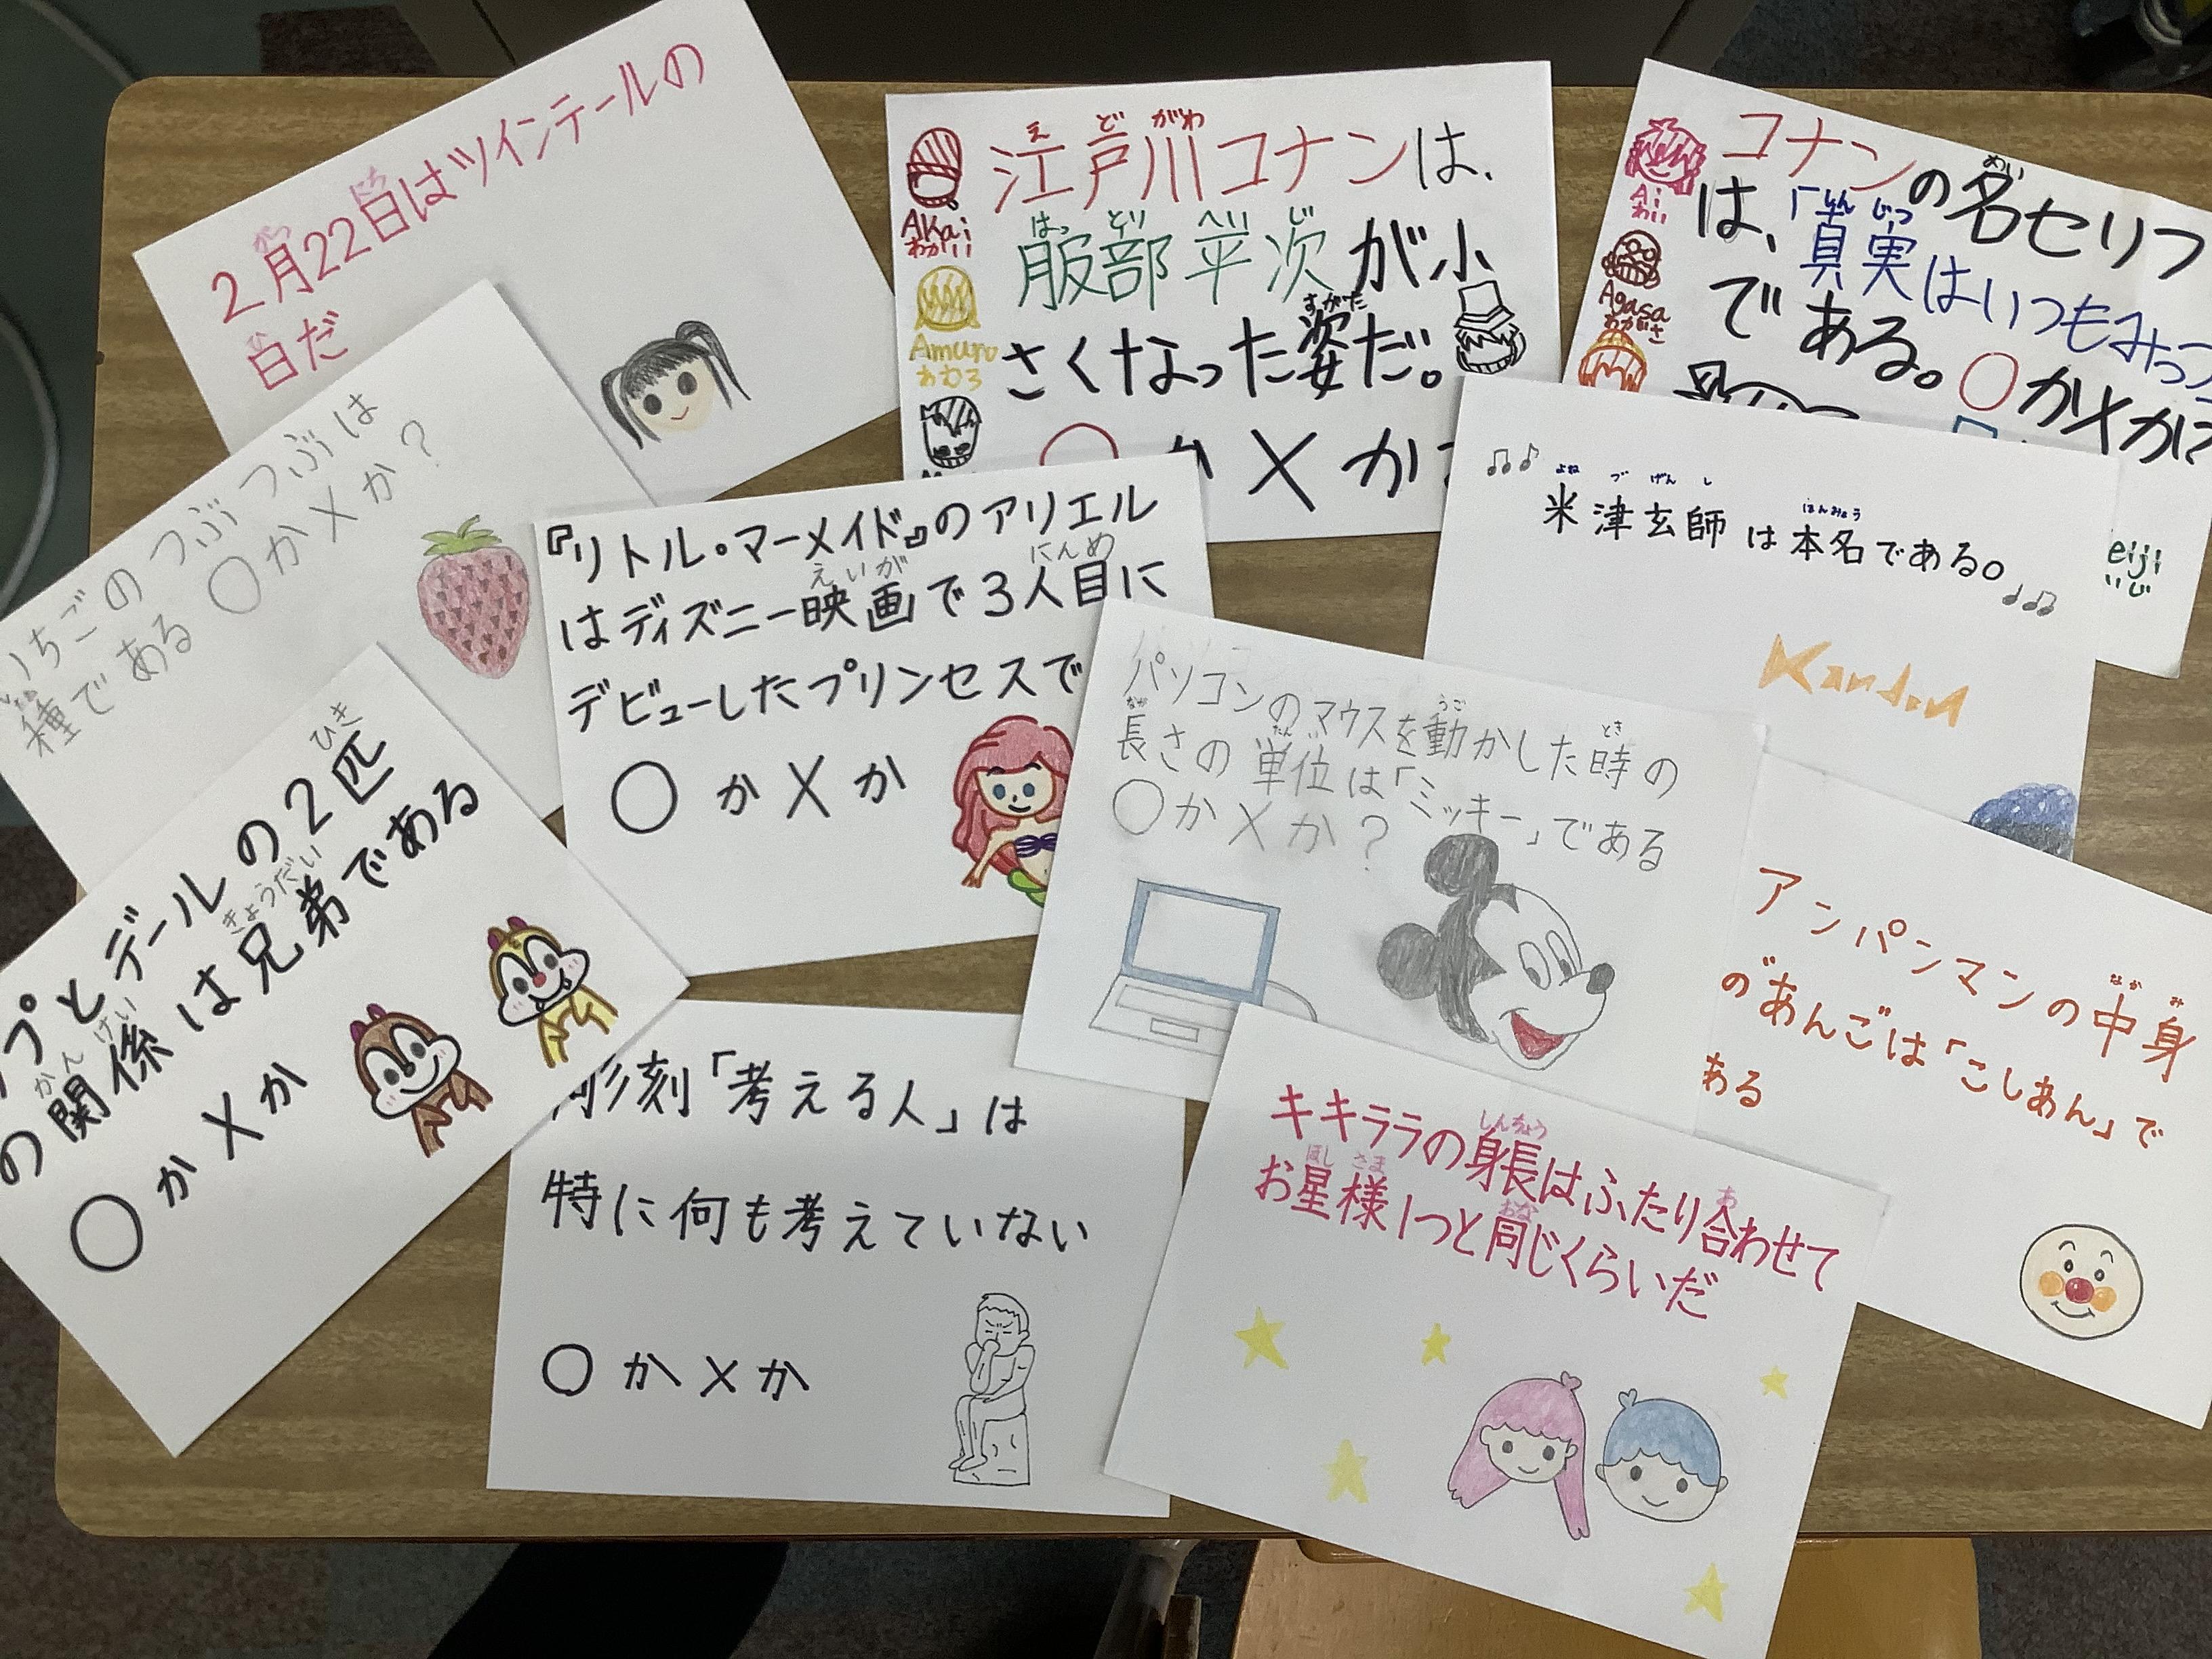 2月22日はツインテールの
日だ
がつ
にち
ひ
江戸川コナンは、
え ど がわ
服部平次が小
はっ とり へい じ
さくなった姿だ。
すがた
か×か
Akai
あかい
Amuro
あむろ
コナンの名セリフ
めい
は、「真実はいつもみっつ
しん じつ
である。○か×か?
Ai
あい
Agasa
あがさ
いちごのつぶつぶは
種である ○か×か?
『リトル・マーメイド』のアリエル
はディズニー映画で3人目に
えいが にんめ
デビューしたプリンセスで
○か×か
米津玄師は本名である。
よね づ げん し ほんみょう
eiji
いじ
パソコンのマウスを動かした時の
うご とき
長さの単位は「ミッキー」である
なが たん
○か×か?
プとデールの2匹
ひき
の関係は兄弟である
かんけい きょうだい
○か×か
彫刻「考える人」は
特に何も考えていない
○か×か
アンパンマンの中身
なか み
の"あんごは「こしあん」で
ある
キキララの身長はふたり合わせて
しんちょう あ
お星様1つと同じくらいだ
ほし さま おな